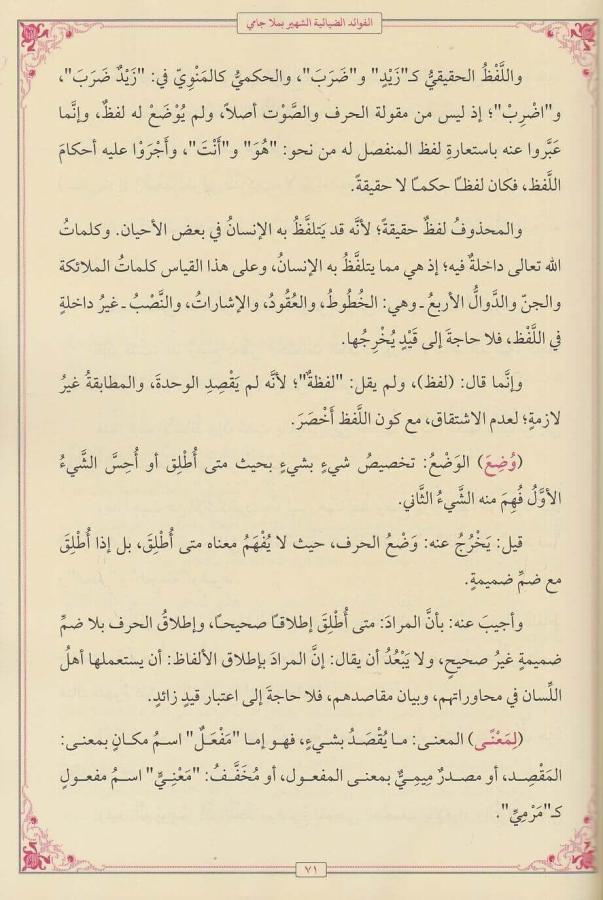 الفوائد الضيائية الشهير بملا جامي
واللَّفْظُ الحقيقيُّ كـ"زَيْدٍ" و"ضَرَبَ"، والحكميُّ كالمَنْوِيّ في: "زَيْدٌ ضَرَبَ"،
و"اضْرِبْ"؛ إذ ليس من مقولة الحرف والصَّوْت أصلاً، ولم يُوْضَعْ له لفظٌ، وإنَّما
عبَّروا عنه باستعارةِ لفظ المنفصل له من نحو: "هُوَ" و"أَنْتَ"، وأَجْرَوْا عليه أحكامَ
اللَّفظ، فكان لفظًا حكمًا لا حقيقةً.
والمحذوفُ لفظٌ حقيقةً؛ لأنَّه قد يَتلفَّظُ به الإنسانُ في بعض الأحيان. وكلماتُ
الله تعالى داخلةٌ فيه؛ إذ هي مما يتلفَّظُ به الإنسانُ، وعلى هذا القياس كلماتُ الملائكة
والجنّ والدَّوالُّ الأربعُ ـ وهي: الخُطُوطُ، والعُقُودُ، والإشاراتُ، والنَّصْبُ ـ غيرُ داخلةٍ
في اللَّفْظ، فلا حاجةَ إلى قَيْدٍ يُخْرِجُها.
وإنَّما قال: (لفظ)، ولم يقل: "لفظةٌ"؛ لأنَّه لم يَقْصِدِ الوحدةَ، والمطابقةُ غيرُ
لازمةٍ؛ لعدم الاشتقاق، مع كون اللَّفظ أَخْصَرَ.
(وُضِعَ) الوَضْعُ: تخصيصُ شيءٍ بشيءٍ بحيث متى أُطْلِق أو أُحِسَّ الشَّيءُ
الأوَّلُ فُهِمَ منه الشَّيءُ الثَّاني.
قيل: يَخْرُجُ عنه: وَضْعُ الحرف، حيث لا يُفْهَمُ معناه متى أُطْلِقَ، بل إذا أُطْلِقَ
مع ضمِّ ضميمةٍ.
وأجيبَ عنه: بأنَّ المرادَ: متى أُطْلِقَ إطلاقًا صحيحًا، وإطلاقُ الحرف بلا ضمِّ
ضميمةٍ غيرُ صحيحٍ، ولا يَبْعُدُ أن يقالَ: إنَّ المرادَ بإطلاق الألفاظ: أن يستعملها أهلُ
اللِّسان في محاوراتهم، وبيان مقاصدهم، فلا حاجةَ إلى اعتبار قيدٍ زائدٍ.
(لِمَعْنًى) المعنى: ما يُقْصَدُ بشيءٍ، فهو إما "مَفْعَلٌ" اسمُ مكانٍ بمعنى:
المَقْصِد، أو مصدرٌ مِيمِيٌّ بمعنى المفعول، أو مُخَفَّفُ: "مَعْنِيٍّ" اسمُ مفعولٍ
كـ"مَرْمِيٍّ".
٧١